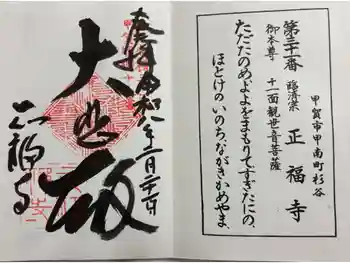 甲賀市甲南町杉谷
第三十一番 臨済宗 正福寺
御本尊 十一面観世音菩薩
たゞたのめよよをまもりてすぎたにの、
ほとけのいのちながきかめやま、
奉拝 令和 年 月 日
大悲殿
正福寺